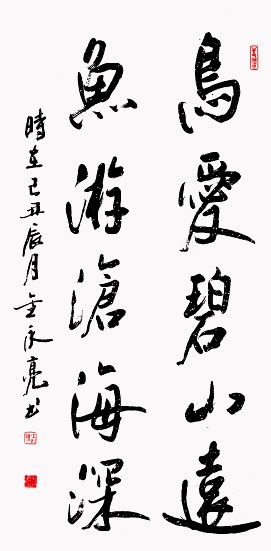 鳥愛碧山遠
魚游滄海深
時在己丑辰月金永亮書